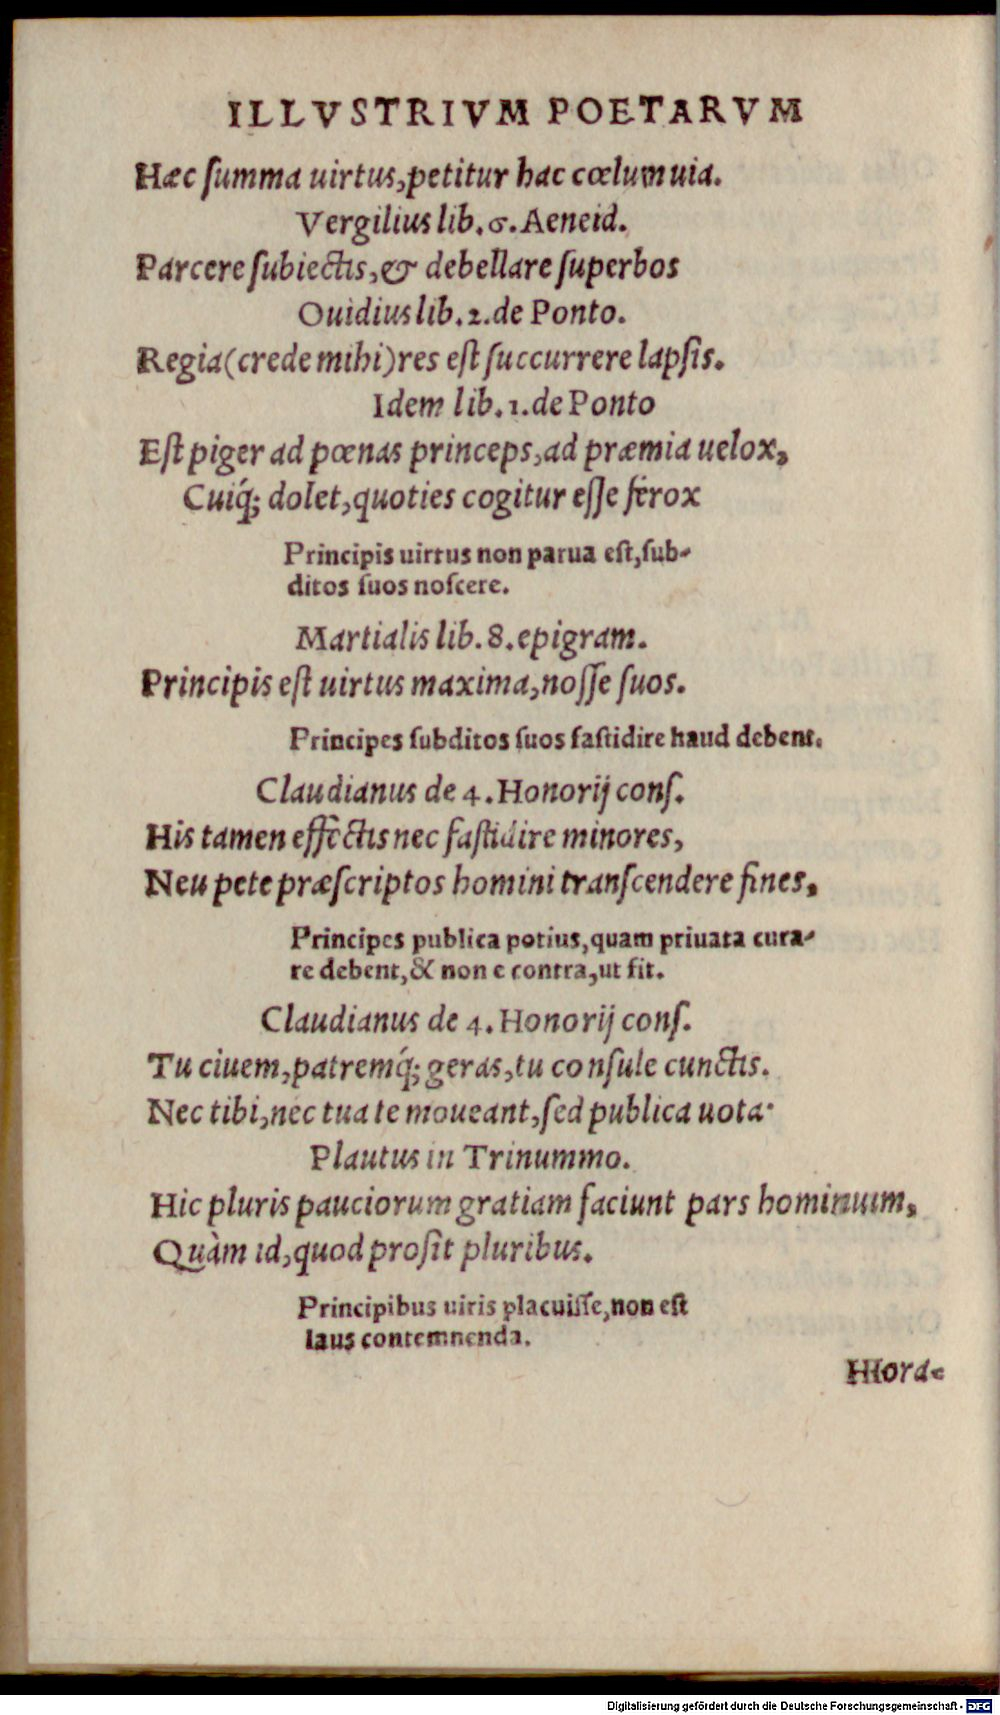 ILLVSTRIVM POETARVM
Hæc ſumma uirtus, petitur hac cœlum uia.
Vergilius lib. 6. Aeneid.
Parcere ſubiectis, & debellare ſuperbos
Ouidius lib. 2. de Ponto.
Regia (crede mihi) res eſt ſuccurrere lapſis.
Idem lib. 1. de Ponto
Eſt piger ad pœnas princeps, ad præmia uelox,
Cuiq́; dolet, quoties cogitur eſſe ferox
Principis uirtus non parua eſt, ſub-
ditos ſuos noſcere.
Martialis lib. 8. epigram.
Principis eſt uirtus maxima, noſſe ſuos.
Principes ſubditos ſuos faſtidire haud debent.
Claudianus de 4. Honorij conſ.
His tamen effectis nec faſtidire minores,
Neu pete præſcriptos homini tranſcendere fines,
Principes publica potius, quam priuata cura-
re debent, & non e contra, ut fit.
Claudianus de 4. Honorij conſ.
Tu ciuem, patremq́; geras, tu conſule cunctis.
Nec tibi, nec tua te moueant, ſed publica uota.
Plautus in Trinummo.
Hic pluris pauciorum gratiam faciunt pars hominum,
Quàm id, quod proſit pluribus.
Principibus uiris placuiſſe, non eſt
laus contemnenda.
Hora-
Digitalisierung gefördert durch die Deutsche Forschungsgemeinschaft - DFG